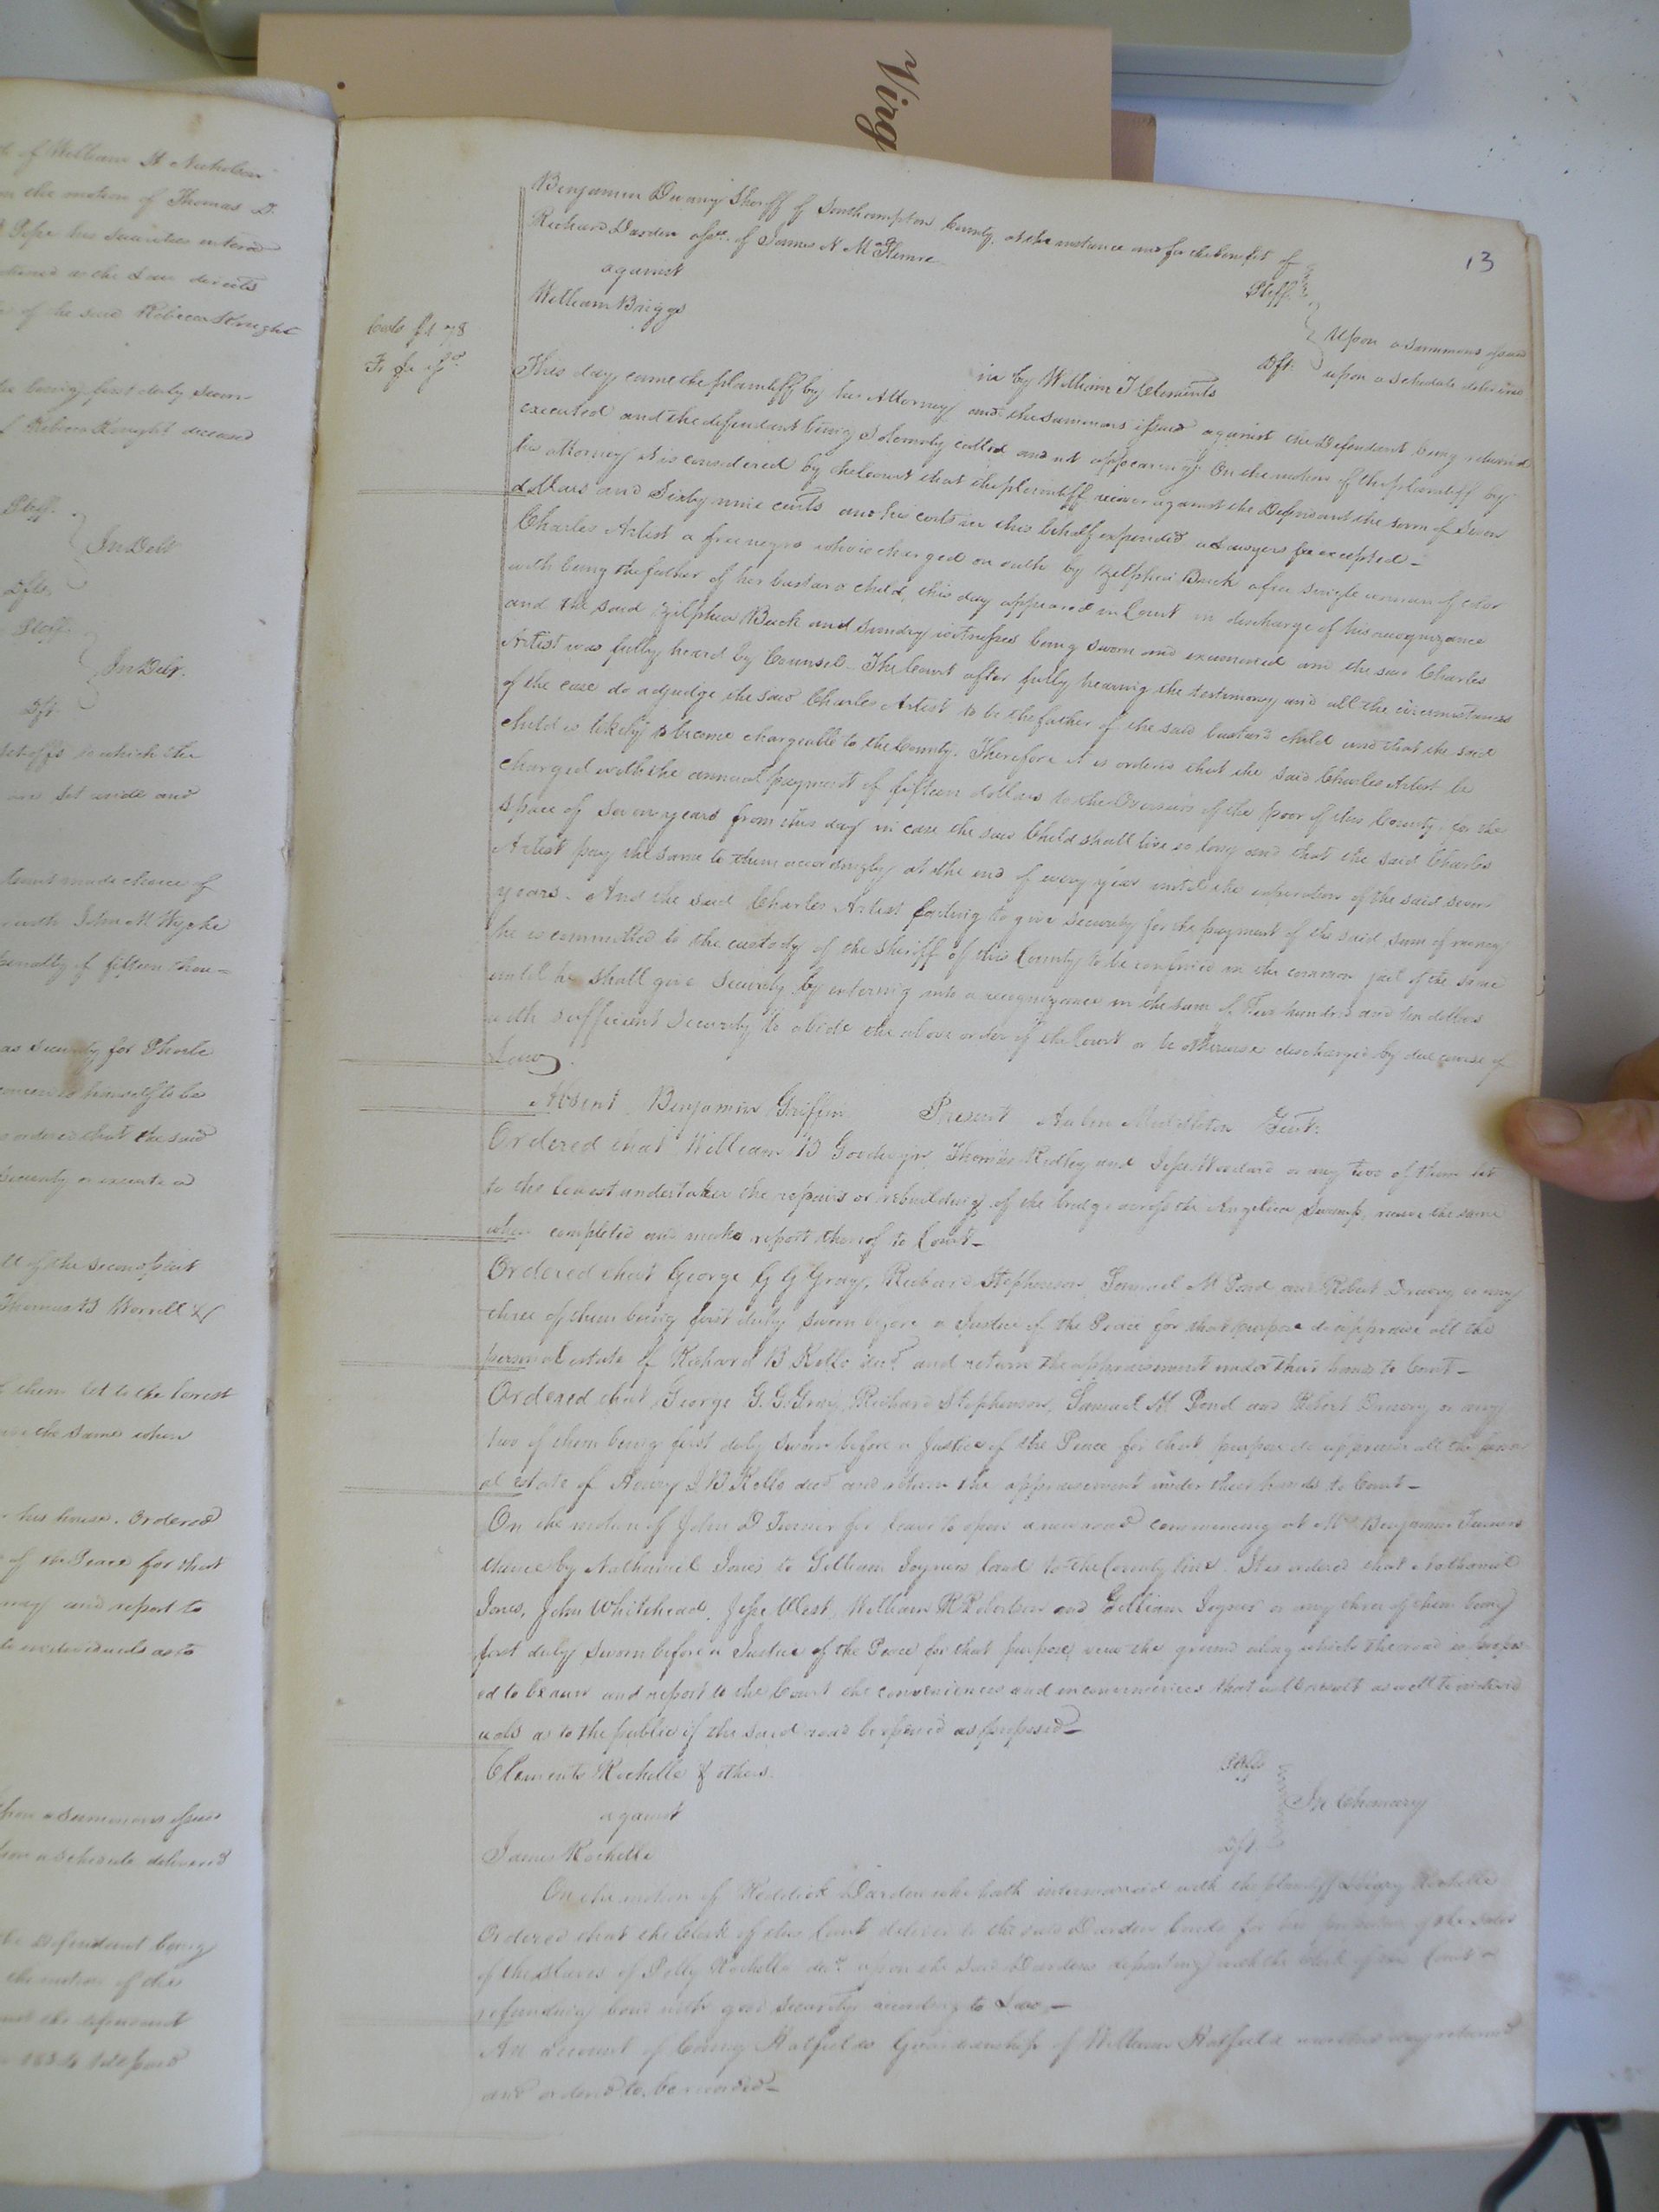 Virg
13
Benjamin Drewry Sheriff of Southampton County, at the instance and for the benefit of
Richard Darden assee. of James N McLemore Pltff.
against
William Briggs Dft.
Upon a Summons issued
upon a schedule delivered
in by William J Clements
Costs $1 78
Fi fa isd.
This day came the plaintiff by his Attorney and the summons issued against the Defendant being returned
executed and the defendant being solemnly called and not appearing: On the motion of the plaintiff by
his attorney it is considered by the Court that the plaintiff recover against the Defendant the sum of Seven
dollars and Sixty nine cents and his costs in this behalf expended a Lawyers fee excepted —
Charles Artist a free negro who is charged on oath by Zilphia Buck a free single woman of color
with being the father of her bastard child, this day appeared in Court in discharge of his recognizance
and the said Zilphia Buck and sundry witnesses being sworn and examined and the said Charles
Artist was fully heard by Counsel — The Court after fully hearing the testimony and all the circumstances
of the case do adjudge the said Charles Artist to be the father of the said bastard child and that the said
child is likely to become chargeable to the County. Therefore it is ordered that the said Charles Artist be
charged with the annual payment of fifteen dollars to the Overseers of the poor of this County, for the
space of seven years from this day in case the said Child shall live so long and that the said Charles
Artist pay the same to them accordingly at the end of every year until the expiration of the said seven
years. And the said Charles Artist failing to give security for the payment of the said sum of money
he is committed to the custody of the Sheriff of this County to be confined in the common jail of the same
until he shall give Security by entering into a recognizance in the sum of hundred and ten dollars
with sufficient Security to abide the above order of the Court or be otherwise discharged by due course of
Law.
Absent Benjamin Griffin Present Middleton Gent:
Ordered that William B Goodwyn, Thomas Ridley and Jesse Woodard or any two of them let
to the lowest undertaker the repairs or rebuilding of the bridge across the Angelica Swamp, receive the same
when completed and make report thereof to Court —
Ordered that George G G Gray, Richard Stephenson, Samuel M Pond and Robert Drewry or any
three of them being first duly sworn before a Justice of the Peace for that purpose do appraise all the
personal estate of Richard B Kello decd. and return the appraisement under their hands to Court —
Ordered that George G. G. Gray, Richard Stephenson, Samuel M Pond and Robert Drewry or any
two of them being first duly sworn before a Justice of the Peace for that purpose do appraise all the person
al estate of Henry B Kello decd and return the appraisement under their hands to Court —
On the motion of John D Turner for leave to open a new road commencing at Mr Benjamin Turners
thence by Nathaniel Jones to Gilliam Joyners land to the County line. It is ordered that Nathaniel
Jones, John Whitehead, Jesse West, William H Robertson and Gilliam Joyner or any three of them being
first duly sworn before a Justice of the Peace for that purpose, view the ground along which the road is propos
ed to be and report to the Court the conveniences and inconveniences that will result as well to individ
uals as to the public if the said road be opened as proposed —
Clements Rochelle & others Pltffs
against
In Chancery
James Rochelle Dft.
On the motion of Reddick Darden who hath intermarried with the plaintiff Rochelle
Ordered that the Clerk of this Court deliver to the said Darden bonds for his of the sales
of the slaves of Polly Rochelle decd. upon the said Darden depositing with the Clerk of this Court a
refunding bond with good security according to Law —
An account of Hatfields Guardianship of William Hatfield was this day returned
and ordered to be recorded —
of William H Nicholson
on the motion of Thomas D.
his Securities entered
as the Law directs
of the said Rebecca Knight
being first duly sworn
Rebecca Knight deceased
Pltff.
In Debt
Dfts.
Pltff.
In Debt.
Dft
setoffs to which the
are set aside and
Court made choice of
with John M. Wyche
penalty of fifteen thou=
as security for
himself to be
ordered that the said
security or execute a
of the second part
Thomas B Worrell &c
them let to the lowest
the same when
his house. Ordered
of the Peace for that
and report to
to individuals as to
Upon a Summons issued
upon a schedule delivered
the Defendant being
the motion of the
the defendant